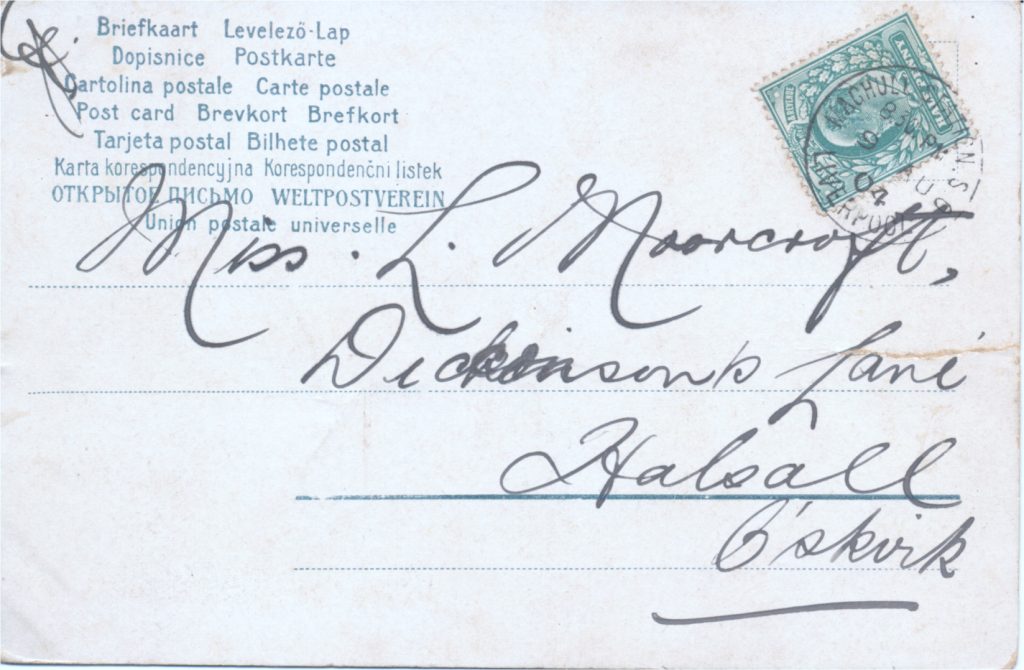 Briefkaart Levelező-Lap
Dopisnice Postkarte
Cartolina postale Carte postale
Post card Brevkort Brefkort
Tarjeta postal Bilhete postal
Karta korespondencyjna Korespondenčni listek
ОТКРЫТОЕ ПИСЬМО WELTPOSTVEREIN
Union postale universelle
Miss. L. Moorcroft,
Dickinson's Lane
Halsall
O'skirk